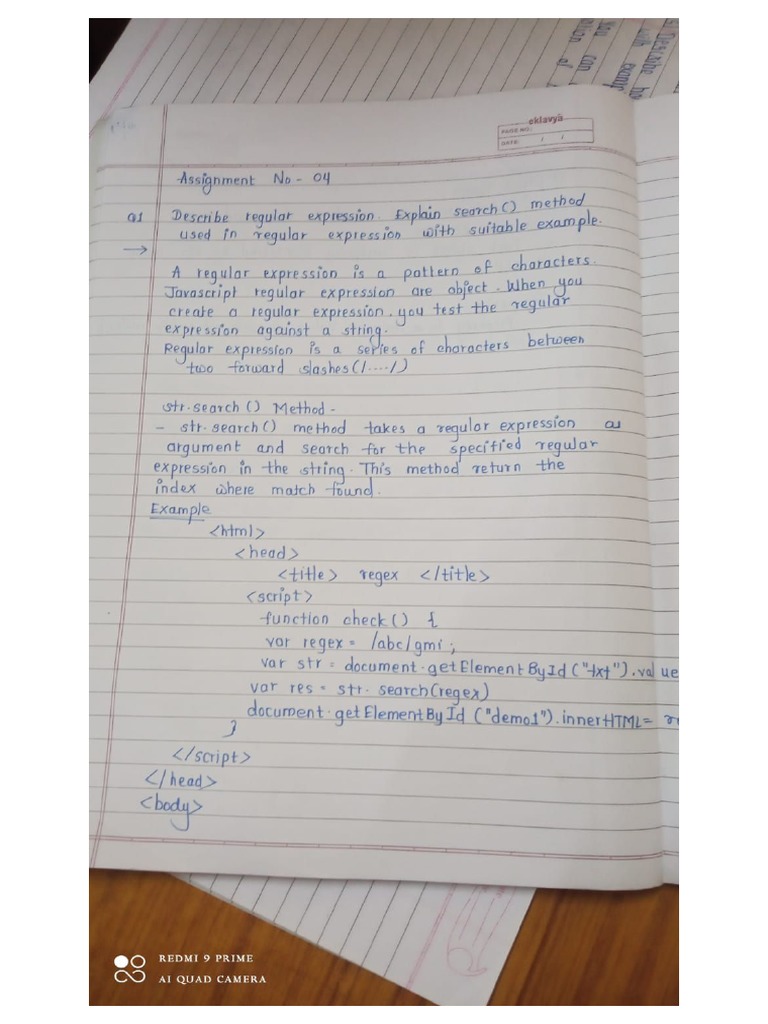 eklavya
PAGE NO:
DATE: / /
Assignment No - 04
Q1 Describe regular expression. Explain search() method
used in regular expression with suitable example.
→
A regular expression is a pattern of characters.
Javascript regular expression are object. When you
create a regular expression, you test the regular
expression against a string.
Regular expression is a series of characters between
two forward slashes(/..../)
str.search() Method -
- str.search() method takes a regular expression as
argument and search for the specified regular
expression in the string. This method return the
index where match found.
Example
<html>
<head>
<title> regex </title>
<script>
function check() {
var regex = /abc/gmi;
var str = document.getElementById("txt").value
var res = str.search(regex)
document.getElementById ("demo1").innerHTML=
}
</script>
</head>
<body>
REDMI 9 PRIME
AI QUAD CAMERA